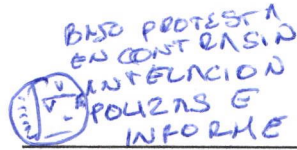 BAJO PROTESTA
EN CONTRA SIN
ANTELACION
POLIZAS E
INFORME